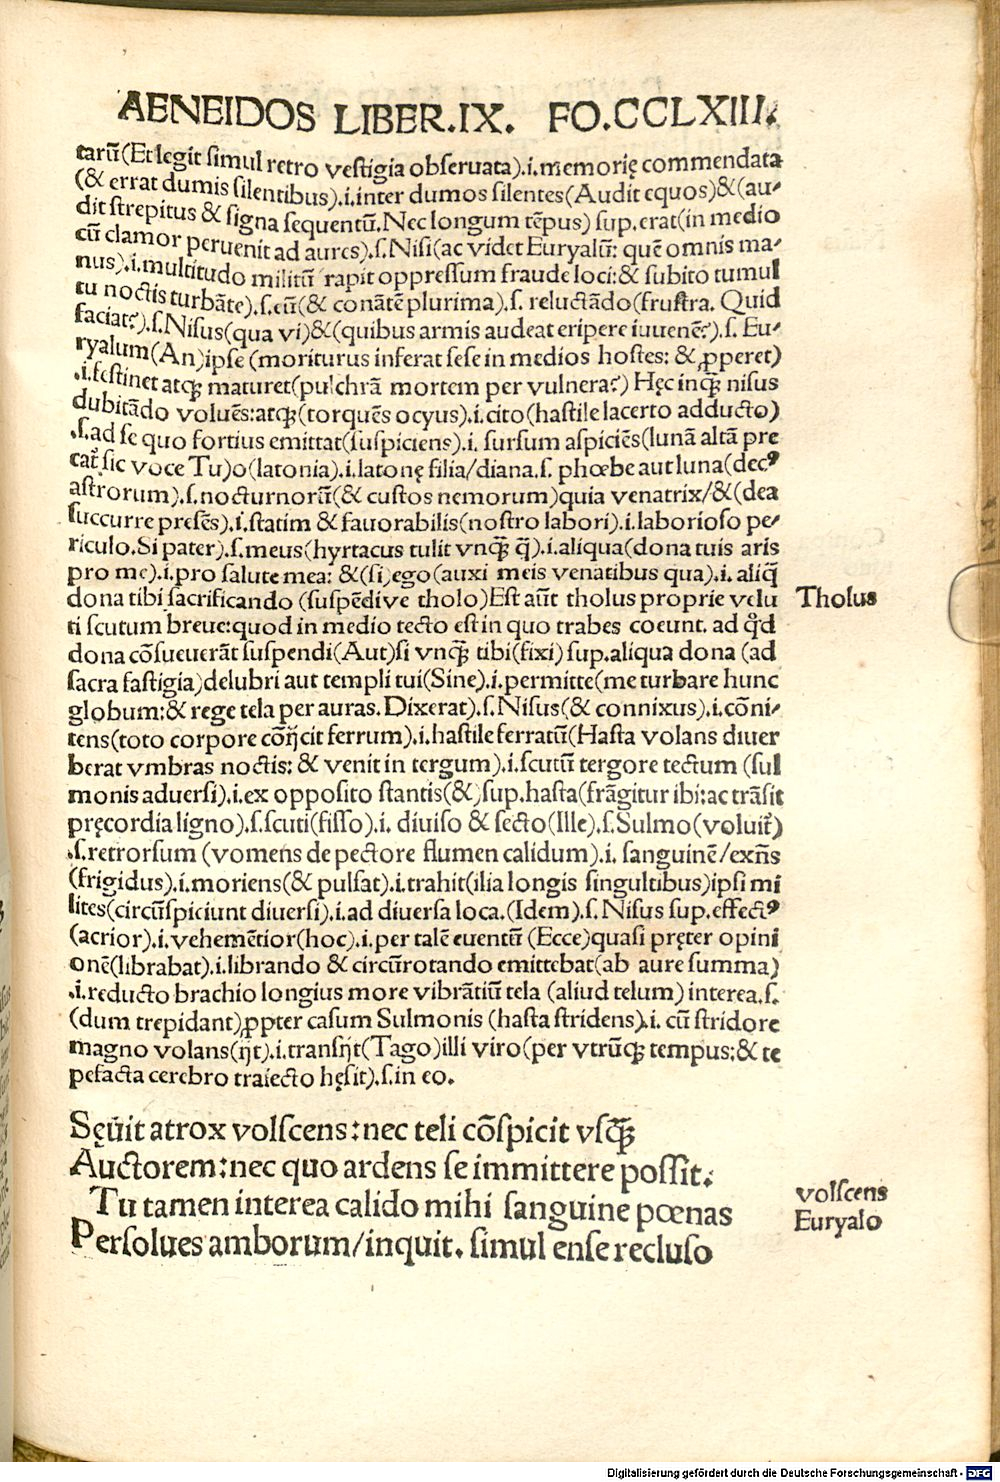 AENEIDOS LIBER.IX. FO.CCLXIII.
tarū(Et legit simul retro vestigia obseruata).i.memorię commendata
(& errat dumis silentibus).i.inter dumos silentes(Audit equos)&(au⸗
dit strepitus & signa sequentū.Nec longum tēpus) sup.erat(in medio
cū clamor peruenit ad aures).ſ.Nisi(ac videt Euryalū: quē omnis ma⸗
nus).i.multitudo militū rapit oppressum fraude loci:& subito tumul
tu noctis turbāte).ſ.eū(& conātē plurima).ſ. reluctādo(frustra. Quid
faciat?).ſ.Nisus(qua vi)&(quibus armis audeat eripere iuuenē?).ſ. Eu⸗
ryalum(An)ipse (moriturus inferat sese in medios hostes: & ꝓperet)
.i.festinet atqꝫ maturet(pulchrā mortem per vulnera?) Hęc inqꝫ nisus
dubitādo voluēs:atqꝫ(torquēs ocyus).i.cito(hastile lacerto adducto)
.ſ.ad se quo fortius emittat(suspiciens).i. sursum aspiciēs(lunā altā pre
cat᷑ sic voce Tu)o(latonia).i.latonę filia/diana.ſ. phœbe aut luna(decꝰ
astrorum).ſ.nocturnorū(& custos nemorum)quia venatrix/&(dea
succurre presēs).i.statim & fauorabilis(nostro labori).i.laborioso pe⸗
riculo.Si pater).ſ.meus(hyrtacus tulit vnqꝫ̄ q̄).i.aliqua(dona tuis aris
pro me).i.pro salute mea: &(si)ego(auxi meis venatibus qua).i. aliq̄
dona tibi sacrificando (suspēdive tholo)Est aūt tholus proprie velu
ti scutum breue:quod in medio tecto est in quo trabes coeunt. ad qͦd
dona cōsueuerāt suspendi(Aut)si vnqꝫ̄ tibi(fixi) sup.aliqua dona (ad
sacra fastigia)delubri aut templi tui(Sine).i.permitte(me turbare hunc
globum:& rege tela per auras. Dixerat).ſ.Nisus(& connixus).i.cōni⸗
tens(toto corpore cōijcit ferrum).i.hastile ferratū(Hasta volans diuer
berat vmbras noctis: & venit in tergum).i.scutū tergore tectum (sul
monis aduersi).i.ex opposito stantis(&)sup.hasta(frāgitur ibi:ac trāsit
pręcordia ligno).ſ.scuti(fisso).i. diuiso & secto(Ille).ſ.Sulmo(voluit᷑)
.ſ.retrorsum (vomens de pectore flumen calidum).i. sanguinē/exn̄s
(frigidus).i.moriens(& pulsat).i.trahit(ilia longis singultibus)ipsi mi
lites(circūspiciunt diuersi).i.ad diuersa loca.(Idem).ſ. Nisus sup.effectꝰ
(acrior).i.vehemētior(hoc).i.per talē euentū (Ecce)quasi pręter opini
onē(librabat).i.librando & circūrotando emittebat(ab aure summa)
.i.reducto brachio longius more vibrātiū tela (aliud telum) interea.ſ.
(dum trepidant)ꝓpter casum Sulmonis (hasta stridens).i. cū stridore
magno volans(ijt).i.transijt(Tago)illi viro(per vtrūqꝫ tempus:& te
pefacta cerebro traiecto hęsit).ſ.in eo.
Tholus
Sęuit atrox volscens:nec teli cōspicit vsqꝫ̄
Auctorem:nec quo ardens se immittere possit.
Tu tamen interea calido mihi sanguine pœnas
Persolues amborum/inquit. simul ense recluso
volscens
Euryalo
Digitalisierung gefördert durch die Deutsche Forschungsgemeinschaft - DFG